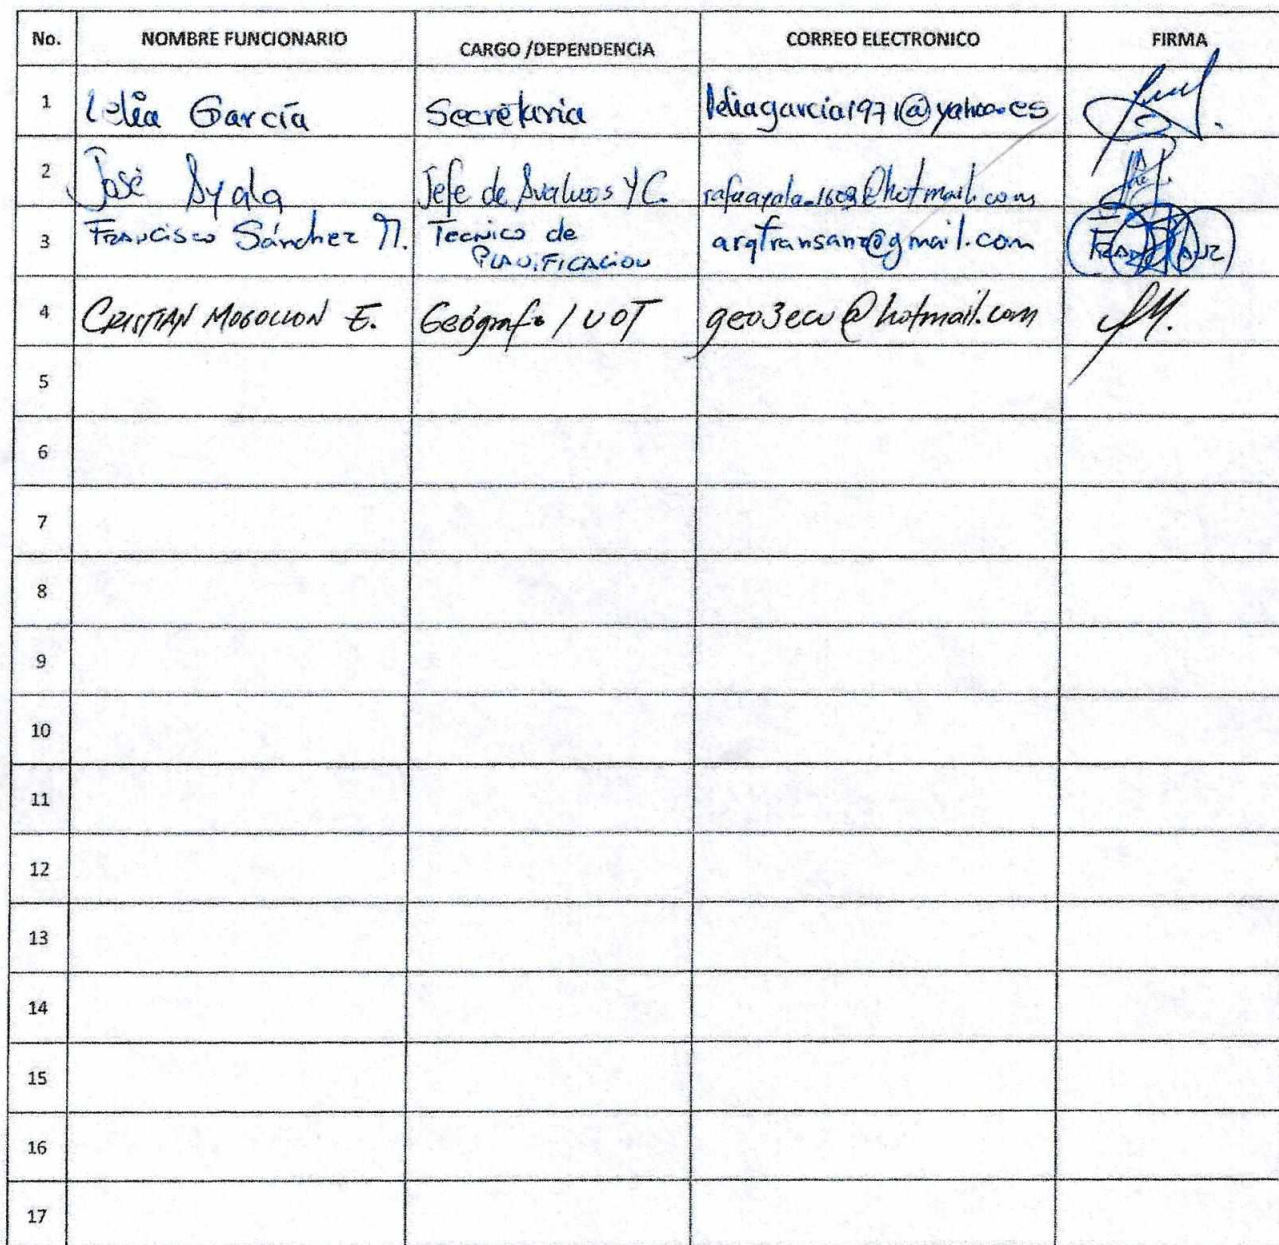 No. NOMBRE FUNCIONARIO CARGO /DEPENDENCIA CORREO ELECTRONICO FIRMA
1 Lelia García Secretaria leliagarcia1971@yahoo.es
2 José Ayala Jefe de Avaluos Y C. rafaayala_1609@hotmail.com
3 Francisco Sánchez M. Tecnico de
PLANIFICACION arqfransanz@gmail.com
4 CRISTIAN MOGOLLON E. Geógrafo / UOT geo3ecu@hotmail.com
5
6
7
8
9
10
11
12
13
14
15
16
17